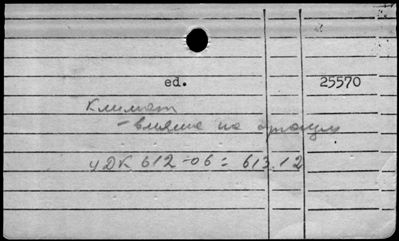 ed. 25570
Климат
- влияние на организм
УДК 612-06:613.12